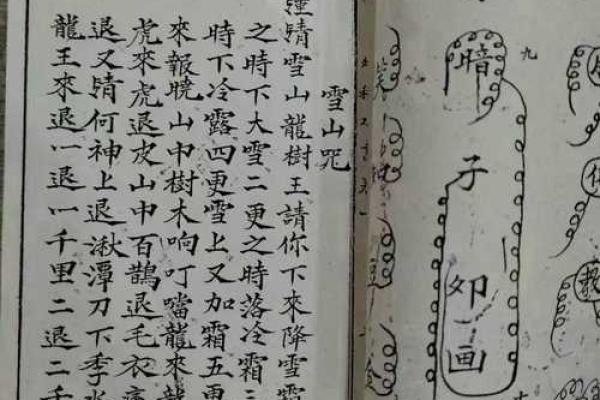 九
暗子卯画
雪山咒
請雪山龍樹王請你下來降雪雪
之時下大雪二更之時落冷霜三
時下冷露四更雪上又加霜五更
來報曉山中樹木响叮噹龍來龍
虎來虎退皮山中百鵲退毛衣
退又請何神上退湫潭刀下季水
龍王來退一退一千里二退二千